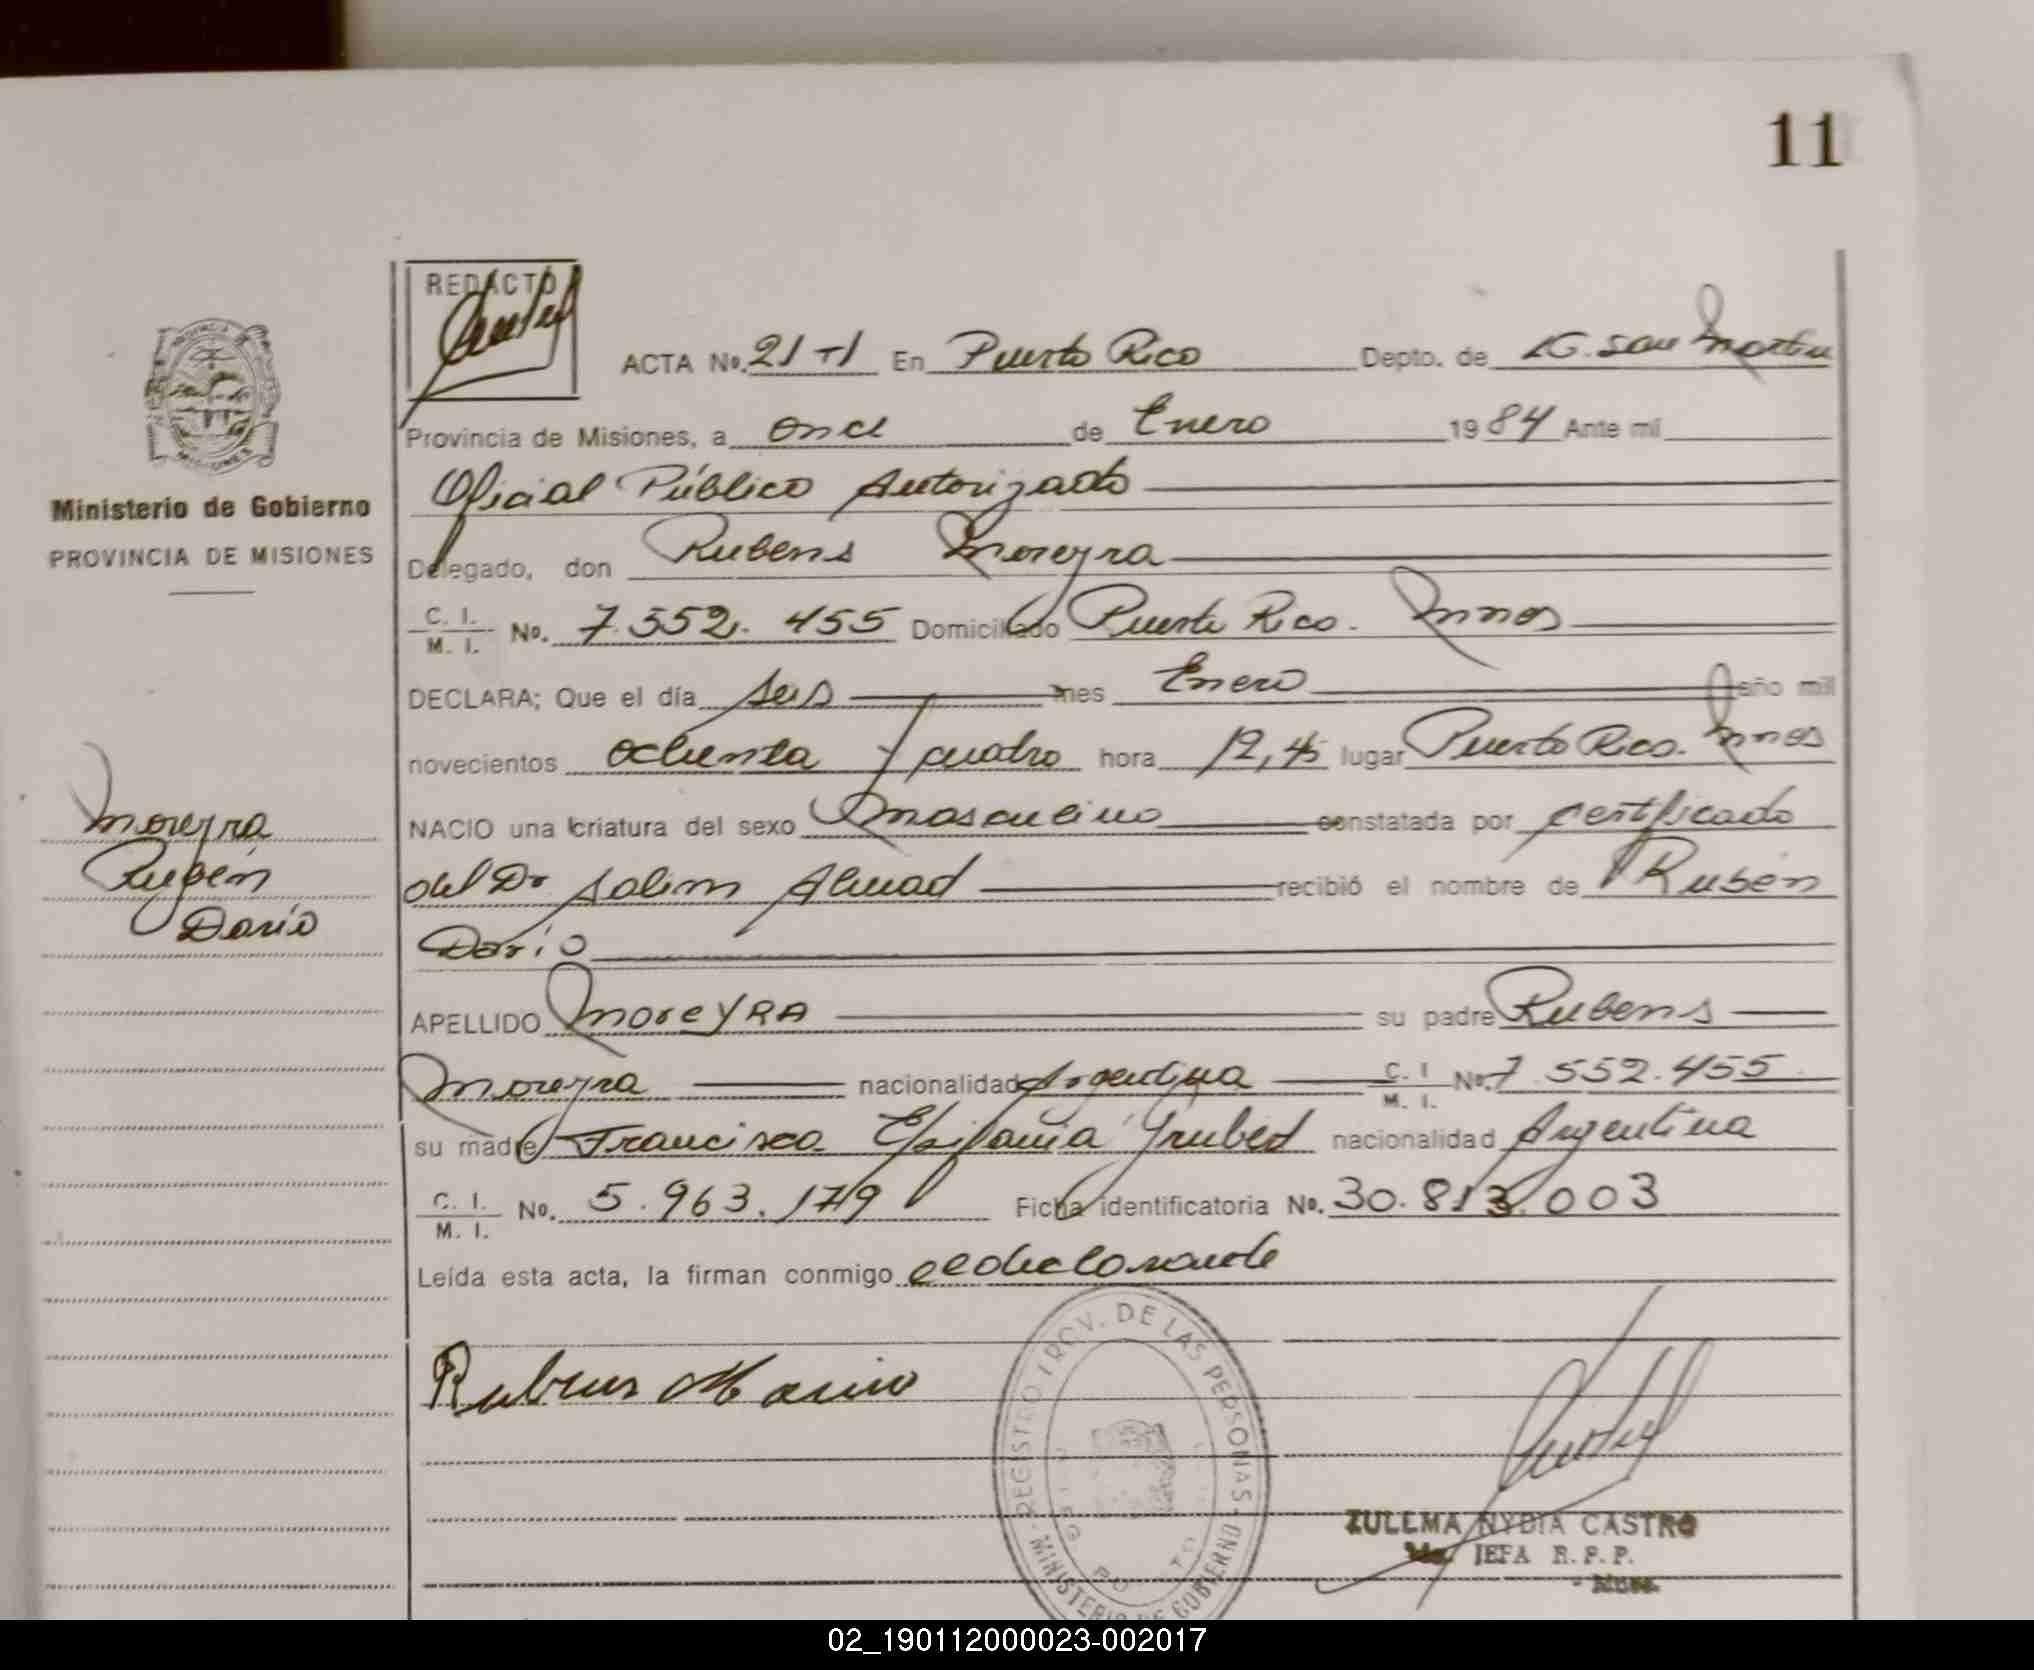 11
REDACTO
ACTA No. 21 T1 En Puerto Rico Depto. de LG. San Martin
Provincia de Misiones, a once de Enero 1984 Ante mi
Oficial Público Autorizado
Ministerio de Gobierno
PROVINCIA DE MISIONES
Delegado, don Rubens Moreyra
C. I. M. I. No. 7.552.455 Domiciliado Puerto Rico. Mnes
DECLARA; Que el día seis mes Enero año mil
novecientos ochenta y cuatro hora 12,45 lugar Puerto Rico. Mnes
Moreyra
Rubén
Darío
NACIO una criatura del sexo masculino constatada por certificado
del Dr Salim Ahuad recibió el nombre de Rubén
Darío
APELLIDO MOREYRA su padre Rubens
Moreyra nacionalidad Argentina C. I M. I. No. 7.552.455
su madre Francisca Epifania nacionalidad Argentina
C. I. M. I. No. 5.963.179 Ficha identificatoria No. 30.813.003
Leída esta acta, la firman conmigo el declarante
Rubens
REGISTRO PROV. DE LAS PERSONAS - MINISTERIO DE GOBIERNO
ZULEMA NYDIA CASTRO
JEFA R. P. P.
02_190112000023-002017